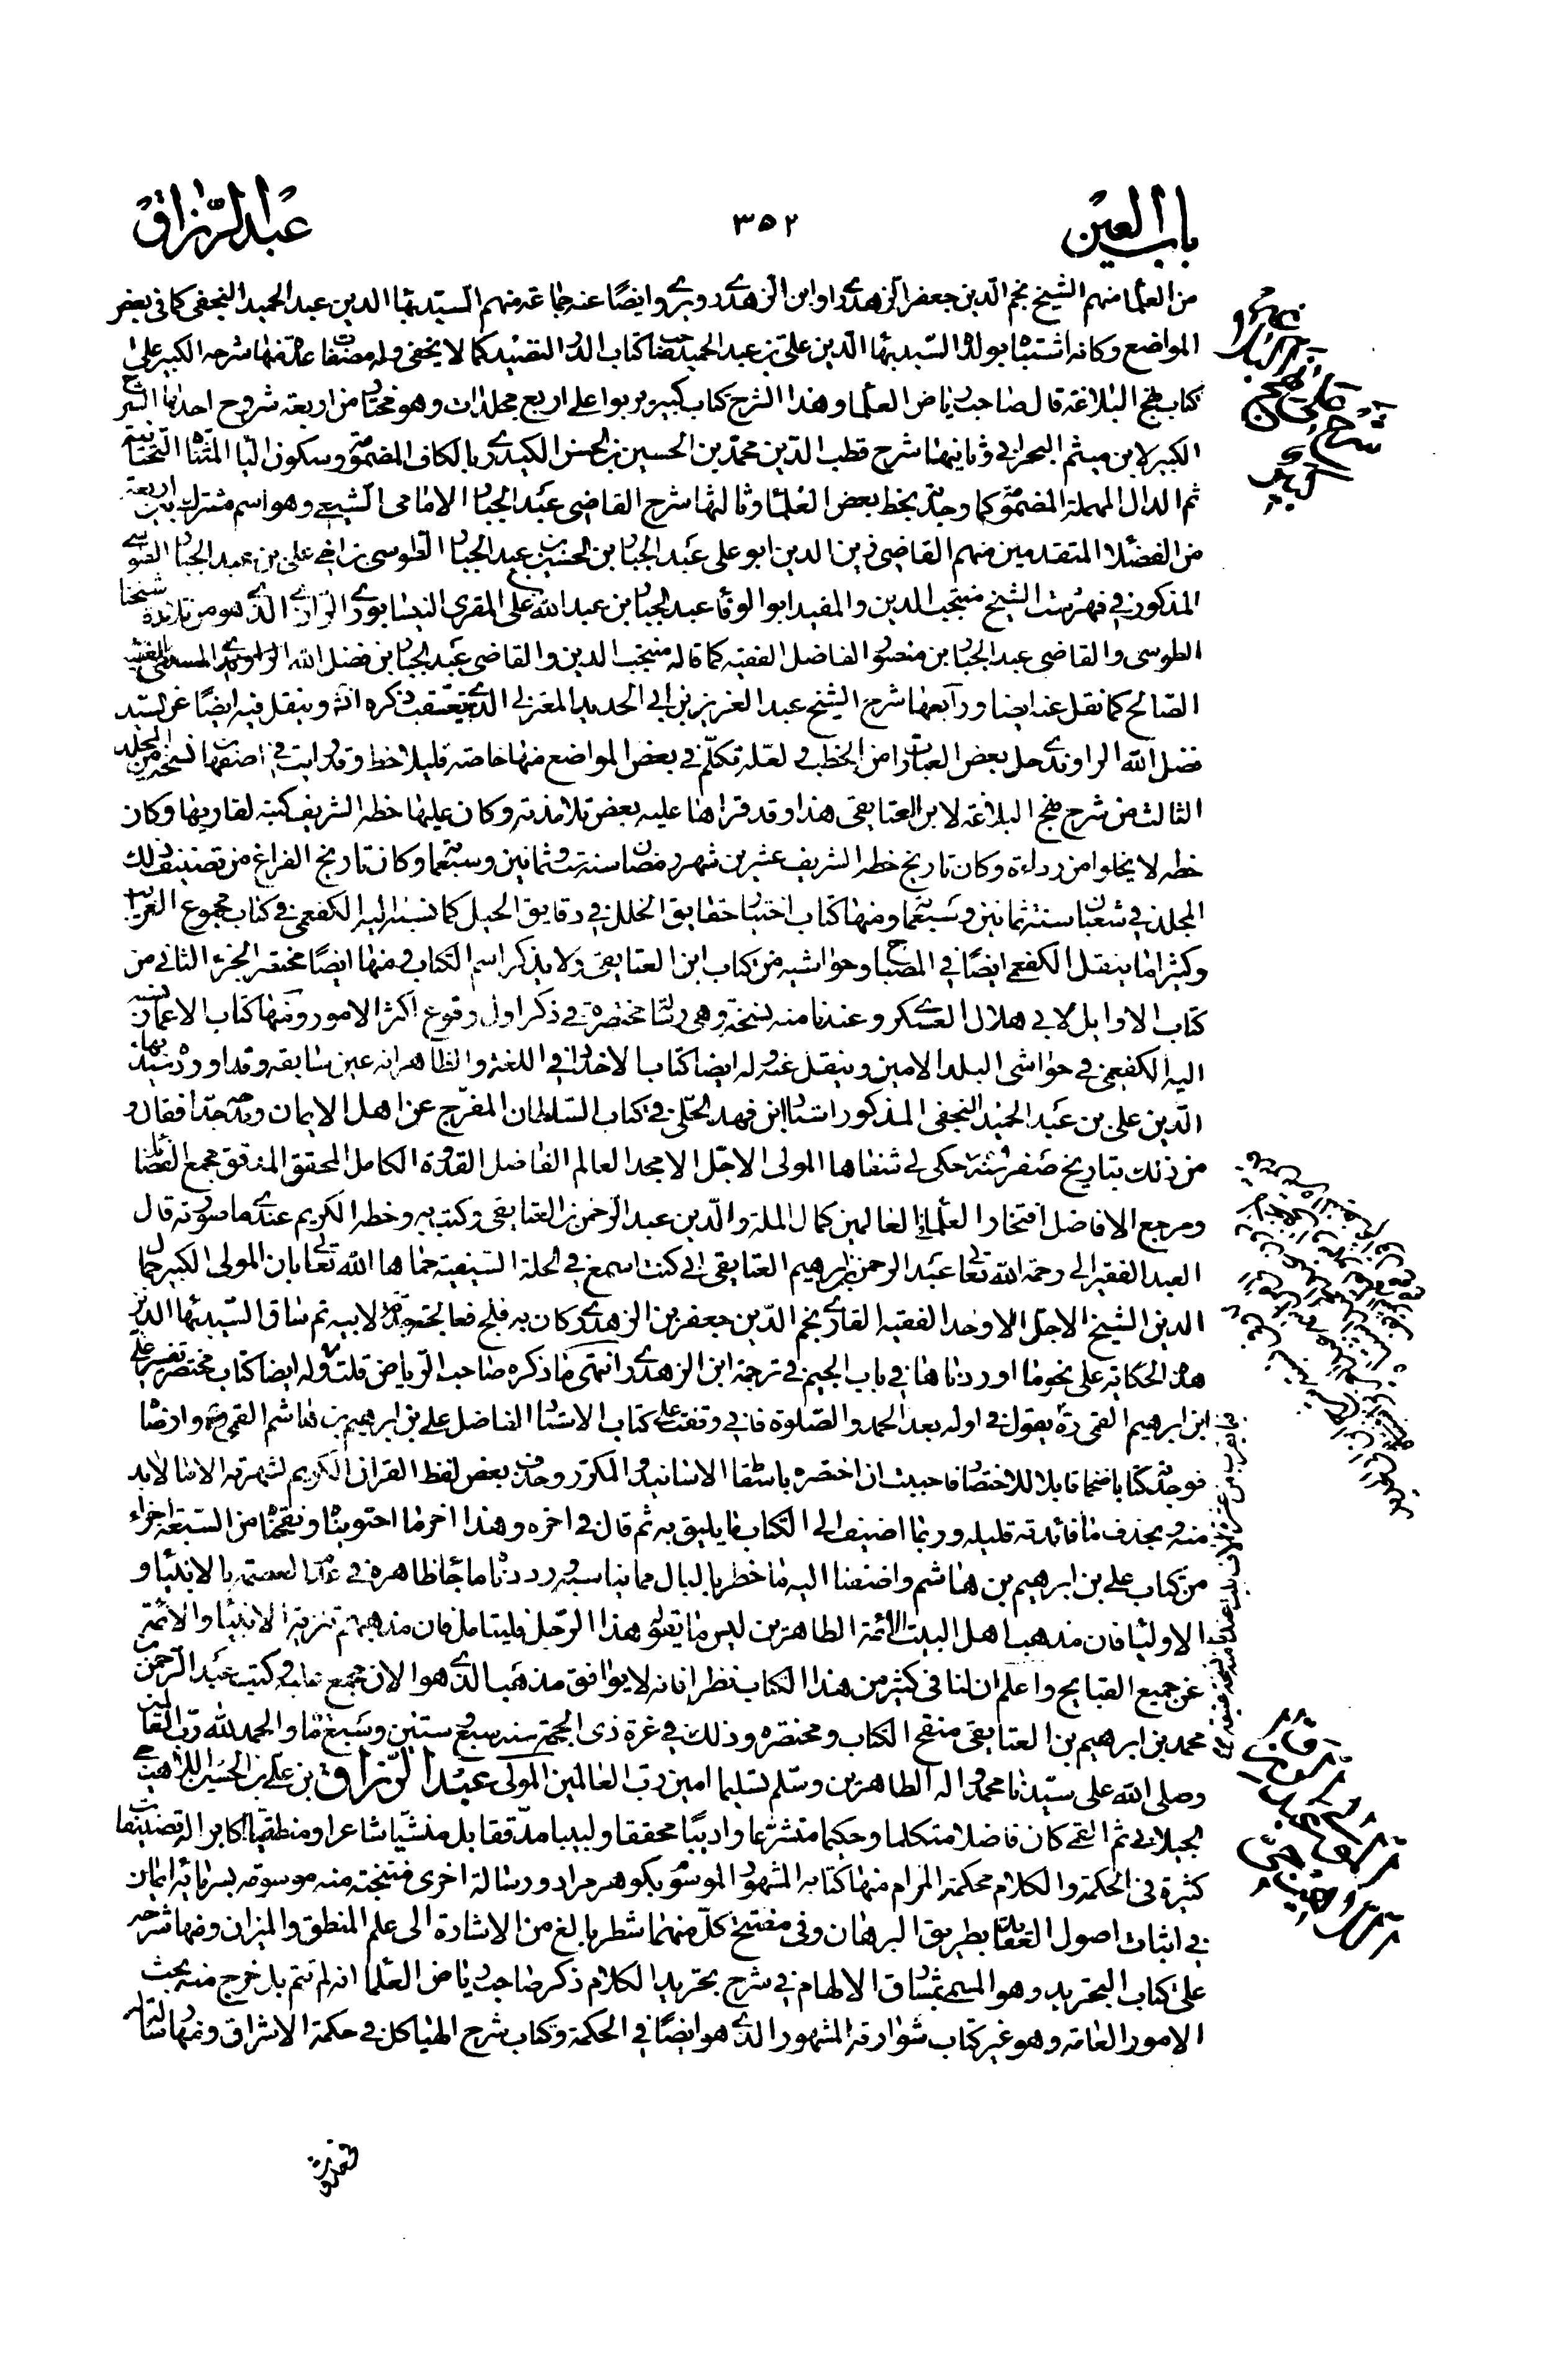 باب العين
٣٥٢
عبد الرزاق
من العلما منهم الشيخ نجم الدين جعفر الزهدري او ابن الزهدري ويروي ايضًا عنه جماعة منهم السيد بهاء الدين عبد الحميد النجفي كما في بعض
المواضع وكانه اشتباه بولده السيد بهاء الدين علي بن عبد الحميد صاحب كتاب الدر النضيد كما لا يخفى وله مصنفات عدة منها شرحه الكبير على
كتاب نهج البلاغة قال صاحب رياض العلماء وهذا الشرح كتاب كبير يربوا على اربع مجلدات وهو مختار من اربعة شروح احديها الشرح
الكبير لابن ميثم البحراني وثانيها شرح قطب الدين محمد بن الحسين بن الحسن الكيدري بالكاف المضمومة وسكون الياء المثناة التحتانية
ثم الدال المهملة المضمومة كما وجدته بخط بعض العلماء وثالثها شرح القاضي عبد الجبار الامامي الشيعي وهو اسم مشترك بين اربعة
من الفضلاء المتقدمين منهم القاضي زين الدين ابو علي عبد الجبار بن الحسين بن عبد الجبار الطوسي بن اخي علي بن عبد الجبار الطوسي
المذكور في فهرست الشيخ منتجب الدين والمفيد ابو الوفا عبد الجبار بن عبد الله بن علي المقري النيسابوري الرازي الذي هو من تلامذة شيخنا
الطوسي والقاضي عبد الجبار بن منصور الفاضل الفقيه كما قاله منتجب الدين والقاضي عبد الجبار بن فضل الله الفقيه
الصالح كما نقل عنه ايضا ورابعها شرح الشيخ عبد العزيز بن ابي الحديد المعتزلي الذي يتعقب ذكره انشه وينقل فيه ايضًا عن السيد
فضل الله الراوندي حل بعض العبارات من الخطب لعله تكلم في بعض المواضع منها خاصة قليلا خط وقد رايت في اصفهان نسخة من المجلد
الثالث من شرح نهج البلاغة لابن العتايقي هذا وقد قراها عليه بعض تلامذته وكان عليها خطه الشريف كتبه لقاريها وكان
خطه لا يخلوا من رداءة وكان تاريخ خطه الشريف عشرين شهر رمضان سنة ست وثمانين وسبعماة وكان تاريخ الفراغ من تصنيف ذلك
المجلد في شعبان سنة ثمانين وسبعماة ومنها كتاب اختيار حقايق الخلل في دقايق الحيل كما نسبه اليه الكفعمي في كتاب مجموع الغرايب
وكثيرا ما ينقل الكفعمي ايضًا في المصباح وحواشيه من كتاب ابن العتايقي ولا يذكر اسم الكتاب ومنها ايضًا مختصر الجزء الثاني من
كتاب الاوايل لابي هلال العسكري وعندنا منه نسخة وهي رسالة مختصرة في ذكر اول وقوع اكثر الامور ومنها كتاب الاعمار نسبه
اليه الكفعمي في حواشي البلد الامين وينقل عنه وله ايضا كتاب الاضداد في اللغة والظاهر انه عين سابقه وقد اورده السيد بهاء
الدين علي بن عبد الحميد النجفي المذكور استاد ابن فهد الحلي في كتاب السلطان المفرج عن اهل الايمان ومدحه جدا فقال و
من ذلك بتاريخ صفر سنة حكى لي شفاها المولى الاجل الامجد العالم الفاضل القدوة الكامل المحقق المدقق مجمع الفضائل
ومرجع الافاضل افتخار العلماء العالمين كمال الملة والدين عبد الرحمن بن العتايقي وكتب به وخطه الكريم عندي ما صورته قال
العبد الفقير الى رحمة الله تعالى عبد الرحمن بن ابرهيم العتايقي اني كنت اسمع في الحلة السيفية حماها الله تعالى بان المولى الكبير جمال
الدين الشيخ الاجل الاوحد الفقيه القاري نجم الدين جعفر بن الزهدري كان به فلج فعالجته جدته لابيه ثم ساق السيد بهاء الدين
هذه الحكاية على نحو ما اوردناها في باب الجيم في ترجمة ابن الزهدري انتهى ما ذكره صاحب الرياض قلت وله ايضا كتاب مختصر تفسير علي
ابن ابرهيم القمي ره يقول في اوله بعد الحمد والصلوة فاني وقفت على كتاب الاستاد الفاضل علي بن ابرهيم بن هاشم القمي وارضاه
فوجدته كتابا ضخما قابلا للاختصار فاحببت ان اختصره باسقاط الاسانيد والمكرر وحذف بعض لفظ القران الكريم لشهرته الا ما لا بد
منه وبحذف ما فائدته قليلة وربما اضيف الى الكتاب ما يليق به ثم قال في اخره وهذا اخر ما احتويناه ونقحناه من السبعة اجزاء
من كتاب علي بن ابرهيم بن هاشم واضفنا اليه ما خطر بالبال مما يناسبه ورددنا ما جاء ظاهره في عدم العصمة بالانبياء و
الاولياء فان مذهب اهل البيت الائمة الطاهرين ليس ما يقوله هذا الرجل فليتامل فان مذهبهم تنزيه الانبياء والائمة
عن جميع القبايح واعلم ان لنا في كثير من هذا الكتاب نظر افانه لا يوافق مذهبنا الذي هو الان مجمع عليه وكتب عبد الرحمن
محمد بن ابرهيم بن العتايقي منقح الكتاب ومختصره وذلك في غرة ذي الحجة سنة سبع وستين وسبعماة والحمد لله رب العالمين
وصلى الله على سيدنا محمد واله الطاهرين وسلم تسليما امين رب العالمين المولى عبد الرزاق بن علي بن الحسين اللاهيجي
الجيلاني ثم القمي كان فاضلا متكلما وحكيما متشرعا واديبًا محققا ولبيبا مدققا بل منشيًا شاعرا ومنطقيا كابرا له تصنيفات
كثيرة في الحكمة والكلام محكمة المرام منها كتابه المشهور الموسوم بكوهر مراد ورسالة اخرى منتخبة منه موسومة بسرمايه ايمان
في اثبات اصول العقايد بطريق البرهان وفي مفتتح كل منهما شطر بالغ من الاشارة الى علم المنطق والميزان ومنها شرحه
على كتاب التجريد وهو المسمى بمشارق الالهام في شرح تجريد الكلام ذكر صاحب رياض العلما انه لم تتم بل خرج منه بحث
الامور العامة وهو غير كتاب شوارقه المشهور الذي هو ايضًا في الحكمة وكتاب شرح الهياكل في حكمة الاشراق ومنها رسالته
شرح كبير
على نهج
البلاغة